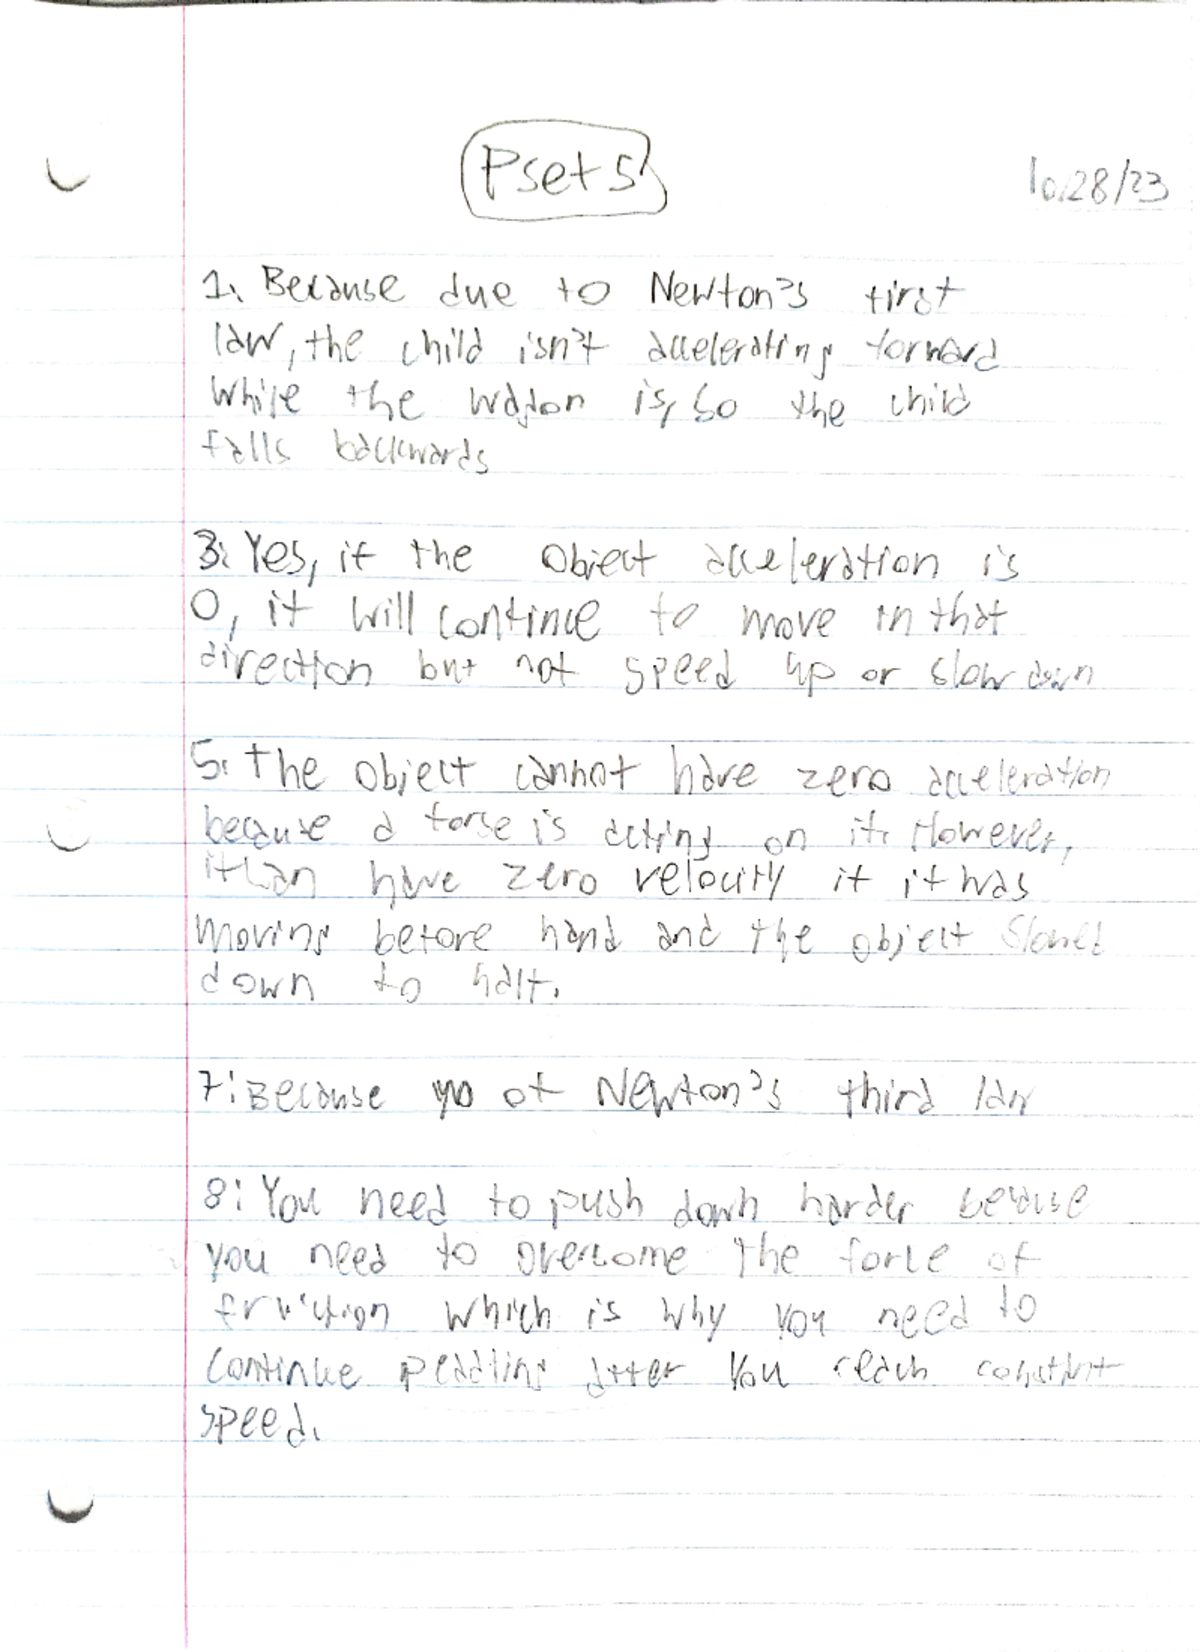 Pset 5
10/28/23
1. Because due to Newton's first
law, the child isn't accelerating forward
while the wagon is, so the child
falls backwards
3: Yes, if the object acceleration is
0, it will continue to move in that
direction but not speed up or slow down
5. The object cannot have zero acceleration
because a forse is acting on it. However,
it can have zero velocity if it was
moving before hand and the object slowed
down to halt.
7: Because of Newton's third law
8: You need to push down harder because
you need to overcome the force of
friction which is why you need to
continue peddling after you reach constant
speed.